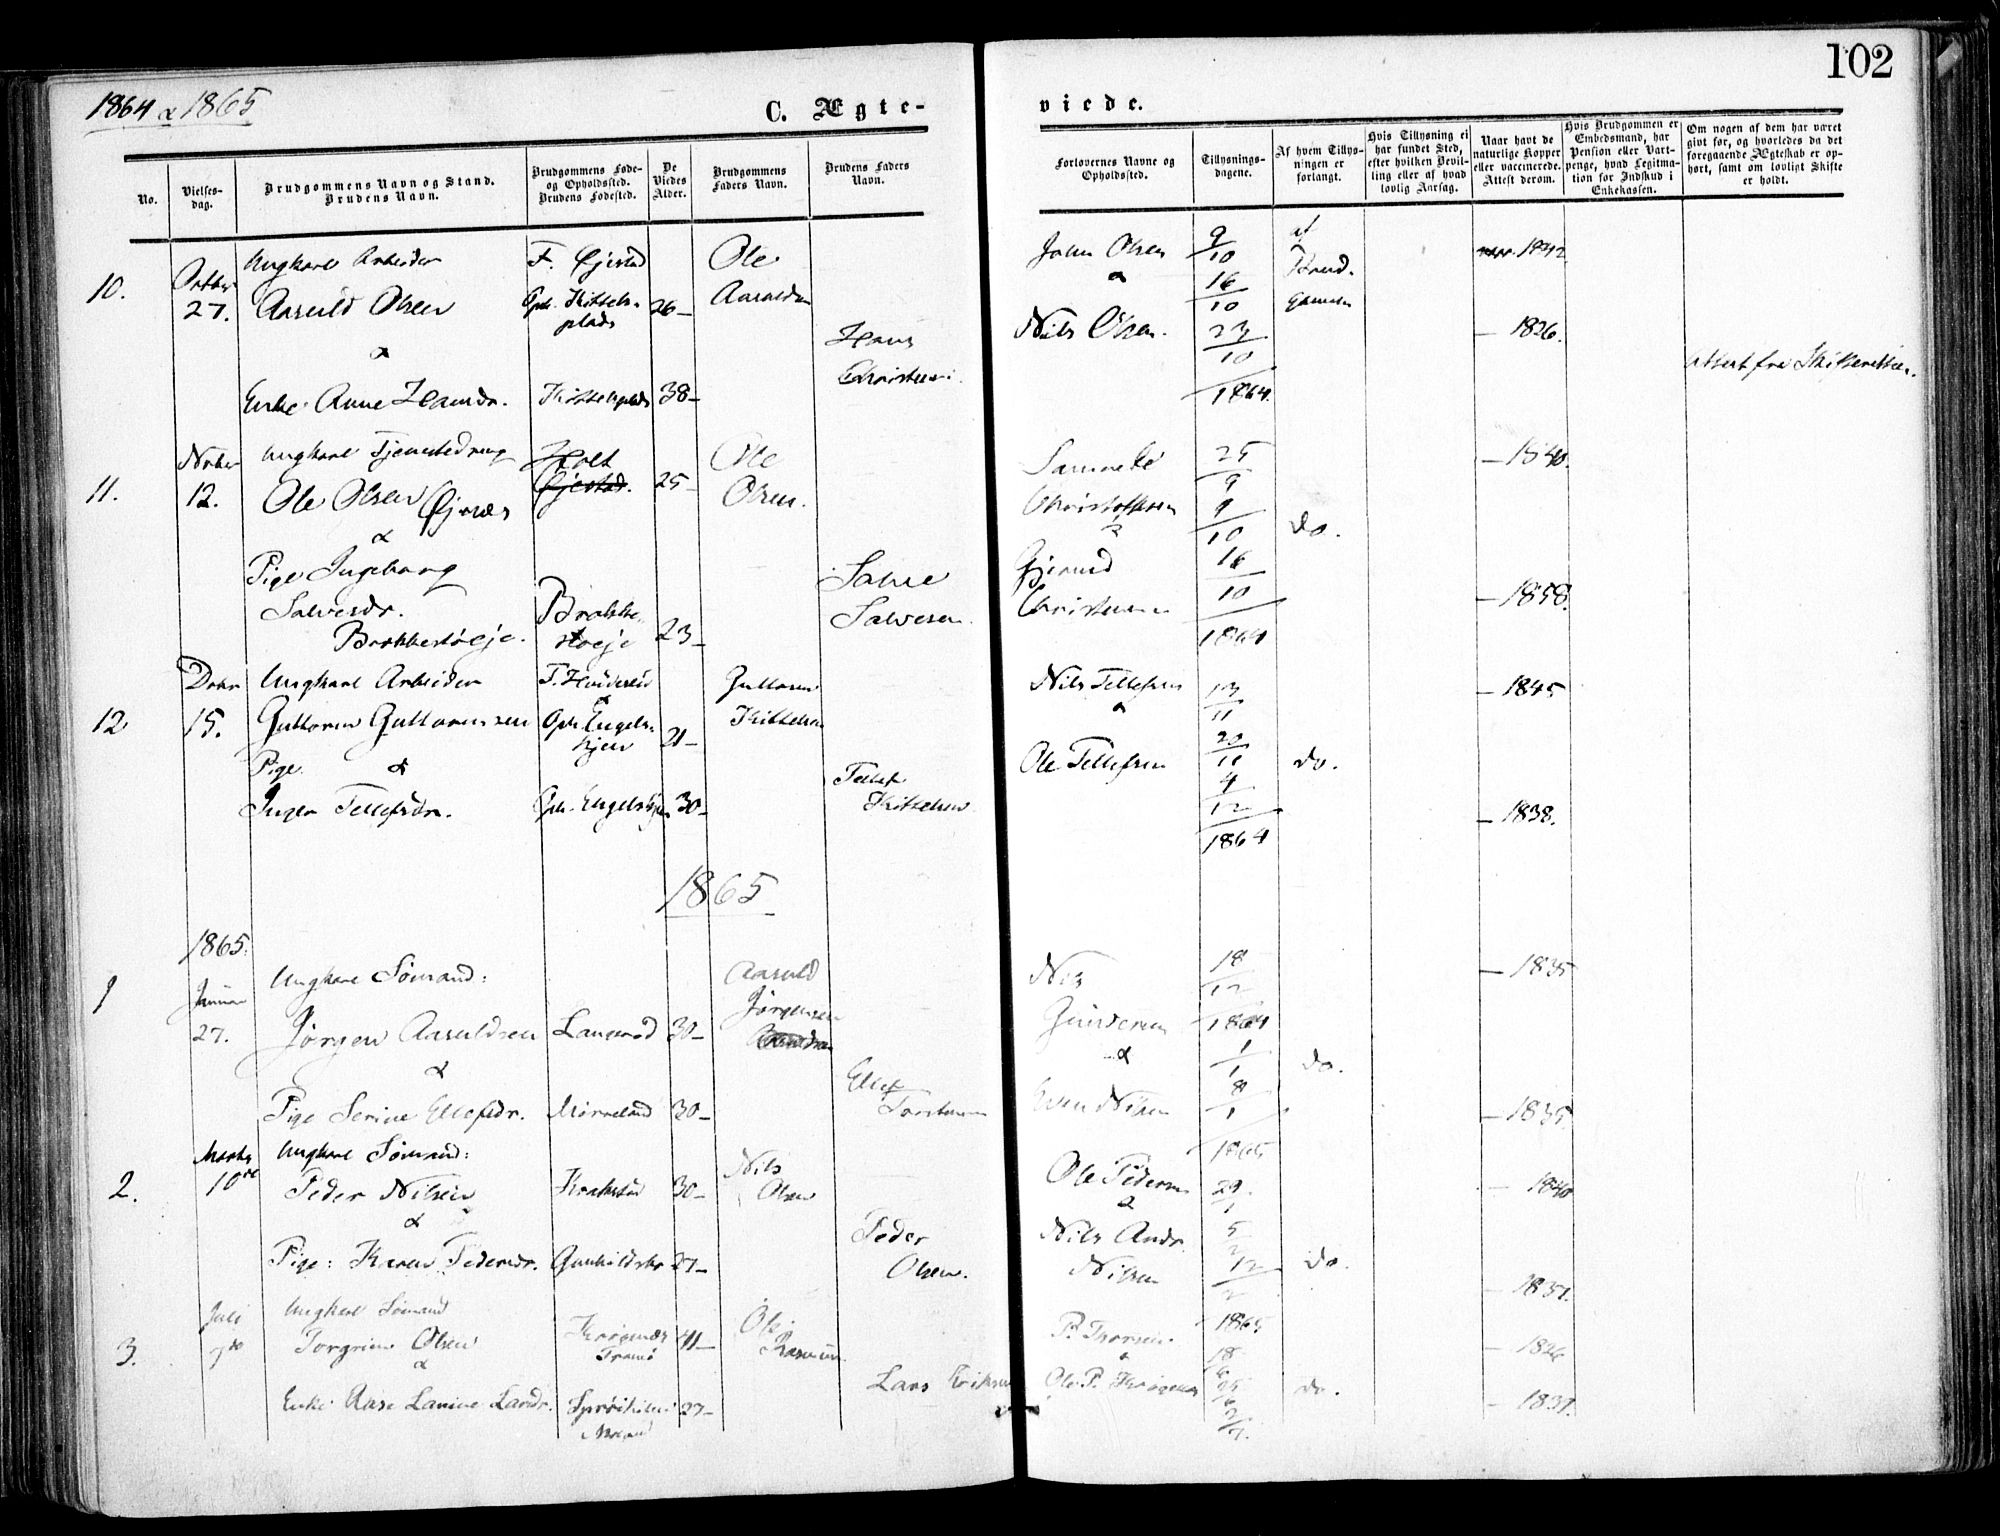 1864 & 1865
C. Ægte-
viede.
102
No.
Vielses-
dag.
Brudgommens Navn og Stand.
Brudens Navn.
Brudgommens Føde-
og Opholdssted.
Brudens Fødested.
De
Viedes
Alder.
Brudgommens
Faders Navn.
Brudens Faders
Navn.
Forlovernes Navne og
Opholdssted.
Tillysnings-
dagene.
Af hvem Tillys-
ningen er
forlangt.
Hvis Tillysning ei
har fundet Sted,
efter hvilken Bevil-
ling eller af hvad
lovlig Aarsag.
Naar havt de
naturlige Kopper
eller vaccinerede.
Attest derom.
Hvis Brudgommen er
Embedsmand, har
Pension eller Vart-
penge, hvad Legitima-
tion for Indskud i
Enkekassen.
Om nogen af dem har været
gift før, og hvorledes da det
foregaaende Ægteskab er op-
hørt, samt om lovligt Skifte
er holdt.
10.
Octbr
27.
Ungkarl Arbeider
Aasuld Olsen
&
Enke Anne Hansdr.
F. Øjestad
Oph. Kittels-
plads
Kittelsplads
26-
38-
Ole
Aasulds
Hans
Christens.
John Olsen
&
Nils Olsen.
9/10
16/10
23/10
1864
af
Brud-
gommen
1842
- 1826.
Attest fra Skifteretten.
11.
Novbr
12.
Ungkarl Tjenestedreng
Ole Olsen Øjnæs
&
Pige Ingeborg
Salvesdr.
Brokkestøeje.
Holt
Øjestad.
Brokke-
støeje
25-
23-
Ole
Olsen.
Salve
Salvesen.
Christophersen
&
Gjerund
Christensen
25/9
9/10
16/10
1864
do.
- 1840.
- 1858.
12
Decbr
15.
Ungkarl Arbeider
Guttorm Guttormsen
Pige &
Inger Tellefsdr.
Oph. Engels-
kjen
Oph. Engelskjen
21-
30-
Guttorm
Kittelsen
Tellef
Kittelsen
Nils Tellefsen
&
Ole Tellefsen
13/11
20/11
4/12
1864
do.
- 1845
- 1838.
1865
1865.
1
Januar
27.
Ungkarl Sømand:
Jørgen Aasuldsen
&
Pige Serine Ellefsdr.
Langerød
Mørreland
30-
30-
Aasuld
Jørgensen
Ellef
Torstensen
Nils
Gundersen
&
Even Nilsen
18/12
1864
1/1
8/1
1865
do.
- 1835
- 1835.
2.
Marts
10de
Ungkarl Sømand:
Peder Nilsen
&
Pige: Karen Pedersdr.
Krabstad
30-
27-
Nils
Olsen
Peder
Olsen.
Ole Pedersen
&
Nils Andr.
Nilsen
29/1
5/2
12/2
1865
do.
- 1840
- 1837.
3.
Juli
7de
Ungkarl Sømand
Torgrim Olsen
&
Enke Aase Lanine Larsdr.
Krøgenæs
Tromø
41-
27-
Ole
Lars Eriksen
P. Thorsen
&
Ole P. Krøgenæs
18/6
25/6
2/7
do.
- 1826
- 1837.